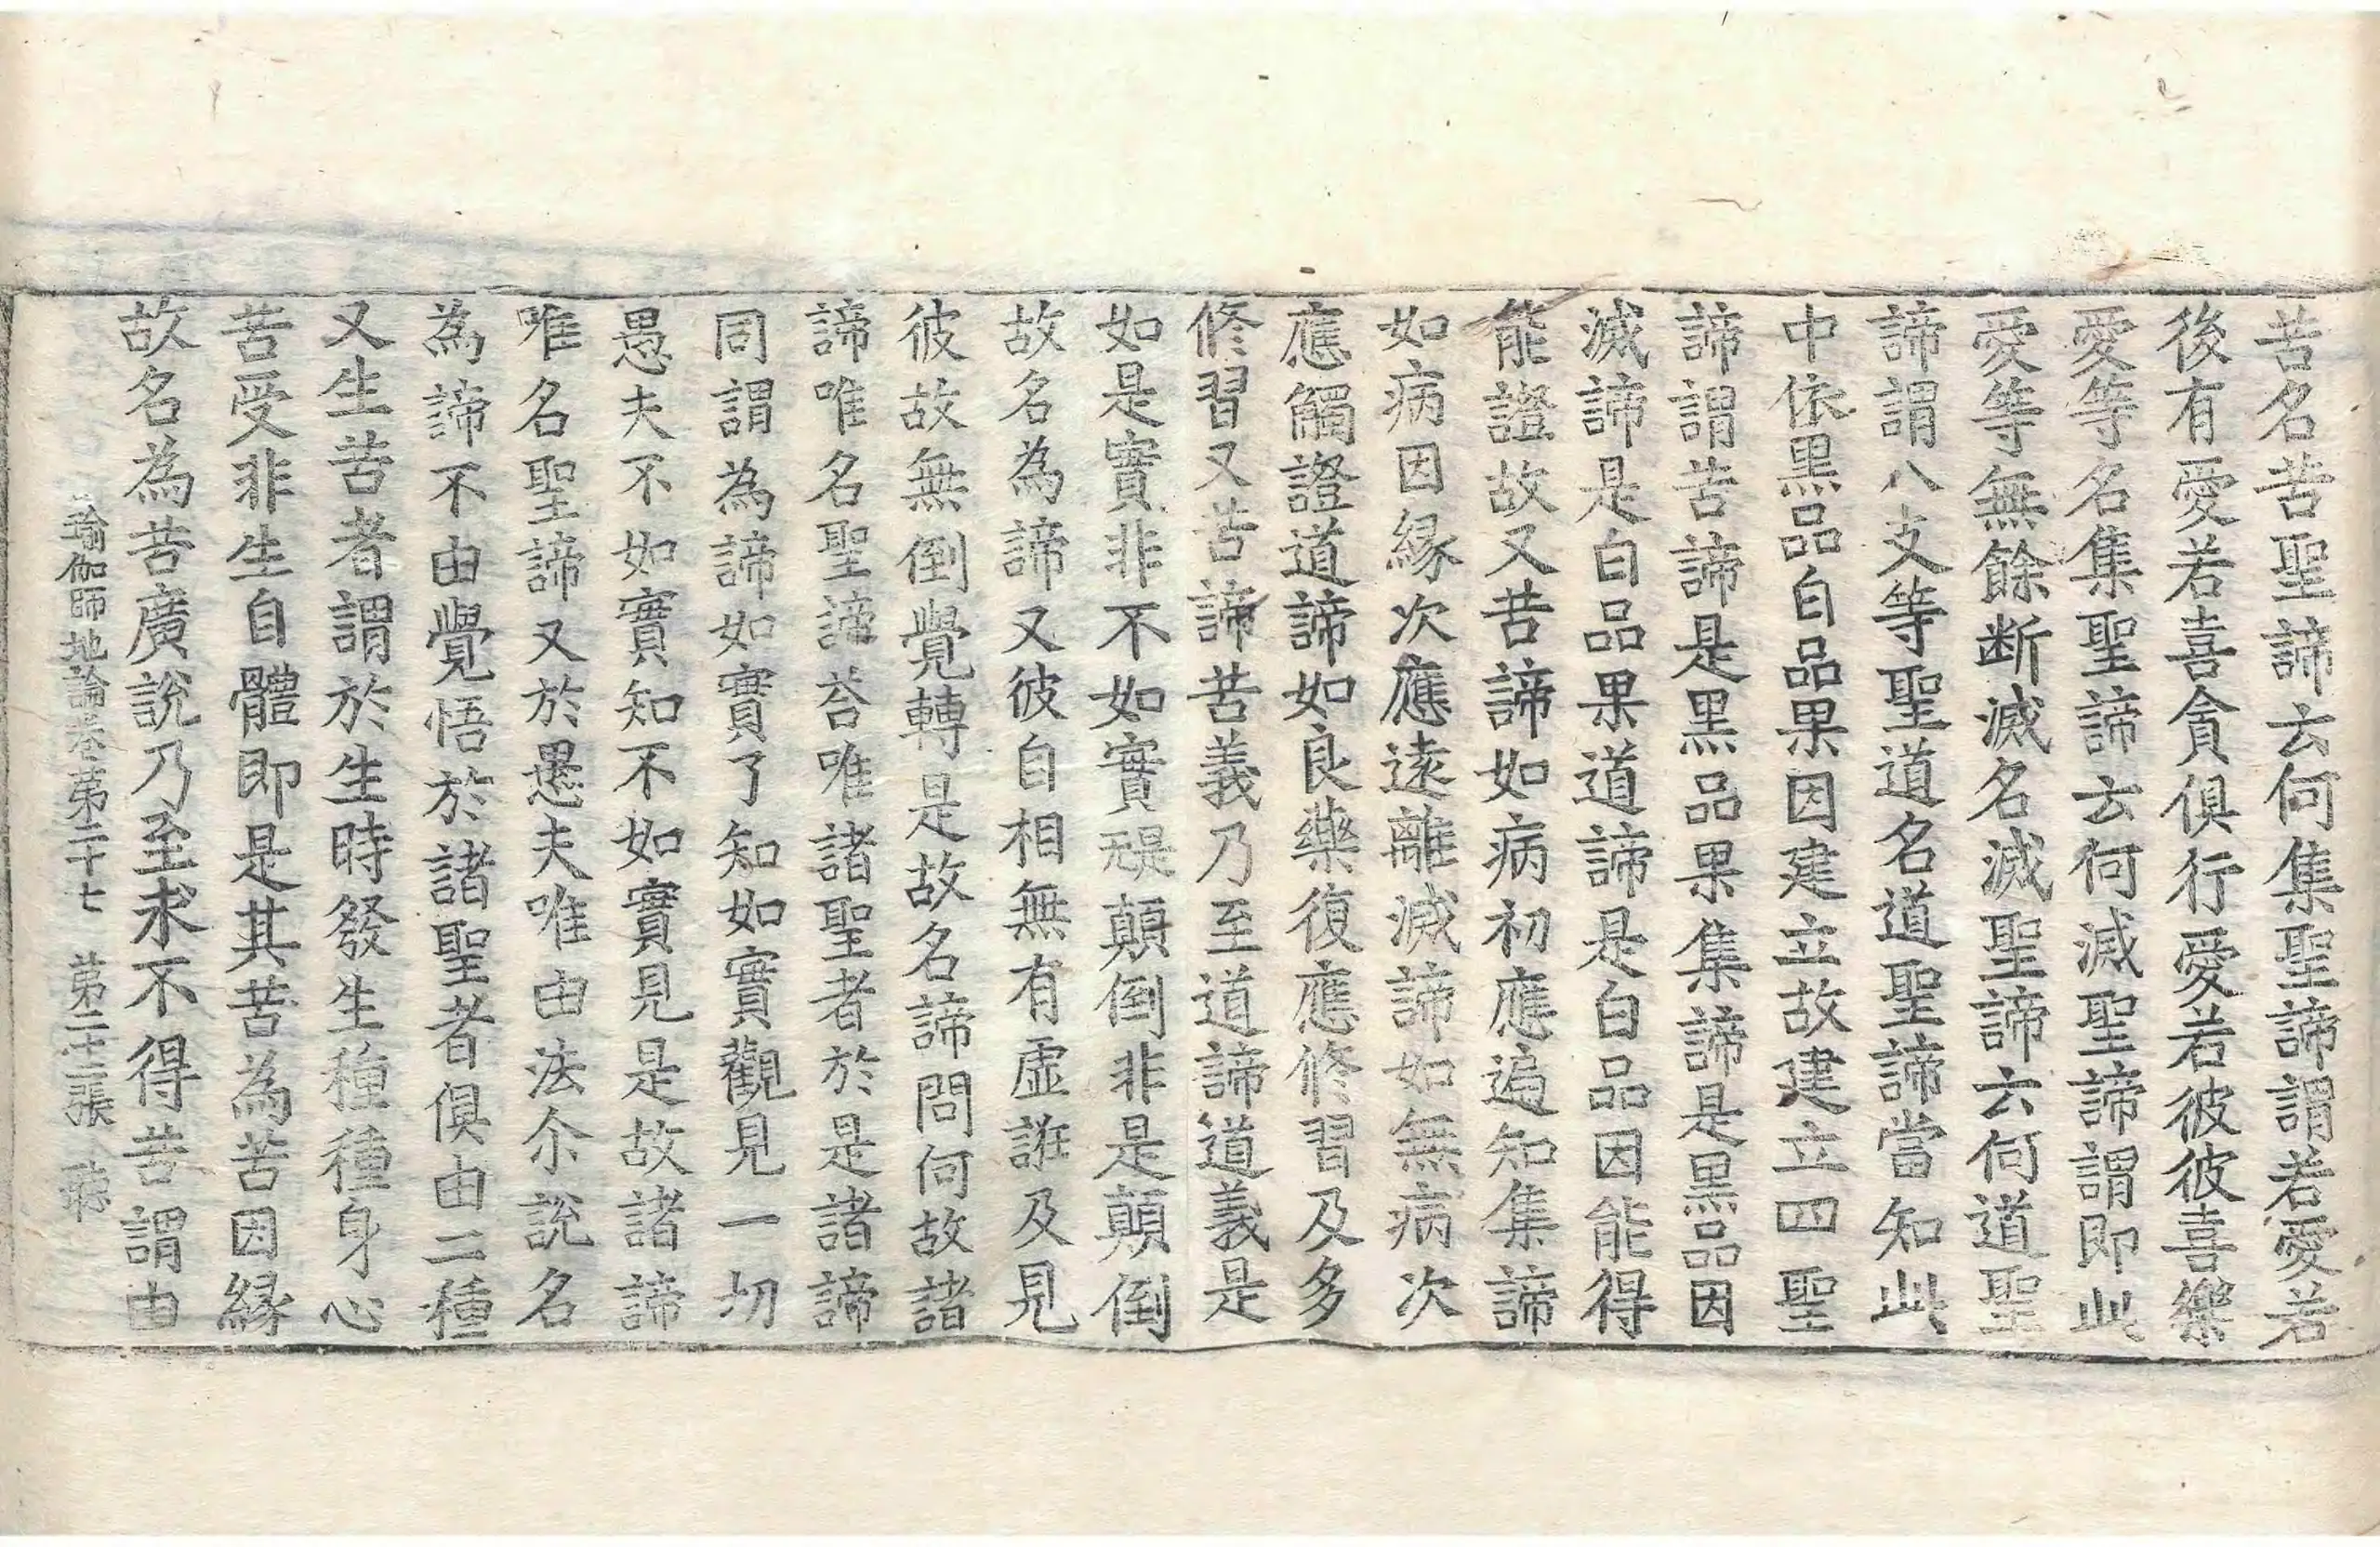 苦名苦聖諦云何集聖諦謂若愛若
後有愛若喜貪俱行愛若彼彼喜樂
愛等名集聖諦云何滅聖諦謂即此
愛等無餘断滅名滅聖諦云何道聖
諦謂八支等聖道名道聖諦當知此
中依黑品白品果因建立故建立四聖
諦謂苦諦是黑品果集諦是黑品因
滅諦是白品果道諦是白品因能得
能證故又苦諦如病初應遍知集諦
如病因縁次應遠離滅諦如無病次
應觸證道諦如良藥復應修習及多
修習又苦諦苦義乃至道諦道義是
如是實非不如實是無顛倒非是顛倒
故名為諦又彼自相無有虛誑及見
彼故無倒覺轉是故名諦問何故諸
諦唯名聖諦荅唯諸聖者於是諸諦
同謂為諦如實了知如實觀見一切
愚夫不如實知不如實見是故諸諦
唯名聖諦又於愚夫唯由法尒說名
為諦不由覺悟於諸聖者俱由二種
又生苦者謂於生時發生種種身心
苦受非生自體即是其苦為苦因縁
故名為苦廣說乃至求不得苦謂由
瑜伽師地論卷第二十七 第二十二張